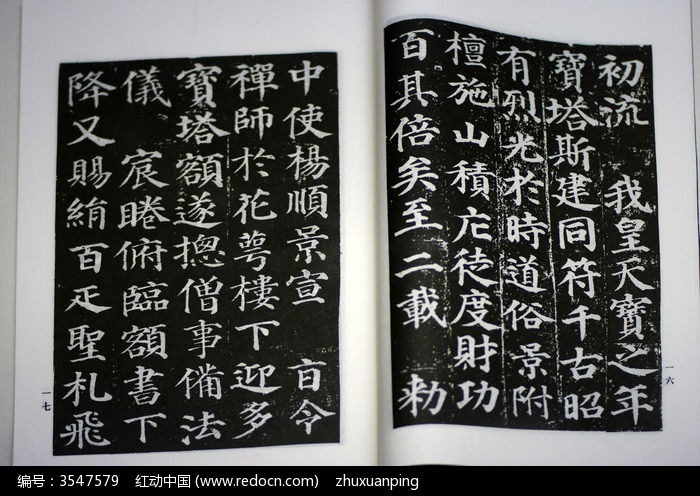 初流　我皇天寶之年
寶塔斯建同符千古昭
有烈光於時道俗景附
檀施山積庀徒度財功
百其倍矣至二載　勑
一六
中使楊順景宣　旨令
禪師於花萼樓下迎多
寶塔額遂揔僧事備法
儀　宸睠俯臨額書下
降又賜絹百疋聖札飛
一七
编号：3547579　红动中国 (www.redocn.com)　zhuxuanping